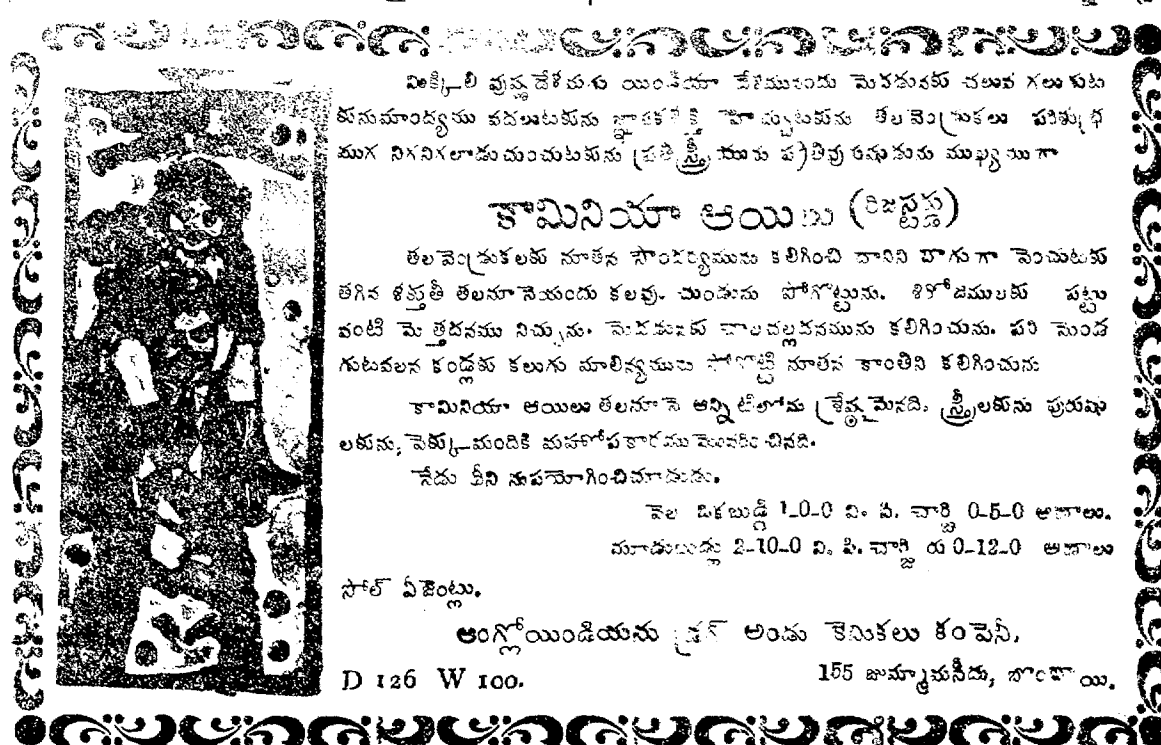 మిక్కిలి వుష్ణదేశమగు యిండియా దేశమునందు మెదడునకు చలువ గలుగుట
కునుమాంద్యము వదలుటకును జ్ఞాపకశక్తి హెచ్చుటకును తలవెంద్రుకలు పరిశుభ్ర
ముగ నిగనిగలాడుచుంచుటకును ప్రతి స్త్రీయును ప్రతివురుషుడును ముఖ్యముగా
కామినియా ఆయిలు (రిజస్టర్డు)
తలవెంద్రుకలకు నూతన సౌందర్యమును కలిగించి దానిని బాగుగా పెంచుటకు
తగిన శక్తుతీ తలనూనెయందు కలవు. చుండును పోగొట్టును. శిరోజములకు పట్టు
వంటి మెత్తదనము నిచ్చును. మెదడునకు చాలచల్లదనమును కలిగించును. పని
గుటవలన కండ్లకు కలుగు మాలిన్యమును పోగొట్టి నూతన కాంతిని కలిగించును
కామినియా ఆయిలు తలనూనె అన్నిటిలోను శ్రేష్ఠమైనది. స్త్రీలకును పురుషు
లకును, పెక్కుమందికి మహోపకారము మొనరించినది.
నేడు దీని నుపయోగించిచూడుడు.
వెల ఒకబుడ్డి 1-0-0 వి. పి. చార్జి 0-5-0 అణాలు.
మూడుబుడ్లు 2-10-0 వి. పి. చార్జి య 0-12-0 అణాలు
సోల్ ఏజెంట్లు.
ఆంగ్లోయిండియను డ్రగ్ అండు కెమికలు కంపెనీ,
D 126 W 100. 155 జుమ్మామసీదు, బొంబాయి.